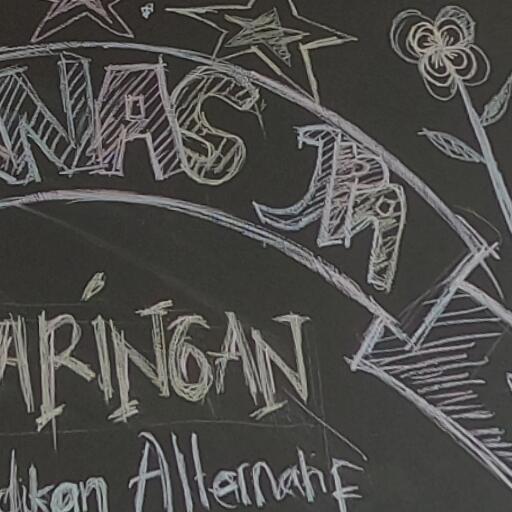 NAS JR
ARINGAN
dikan Alternatif